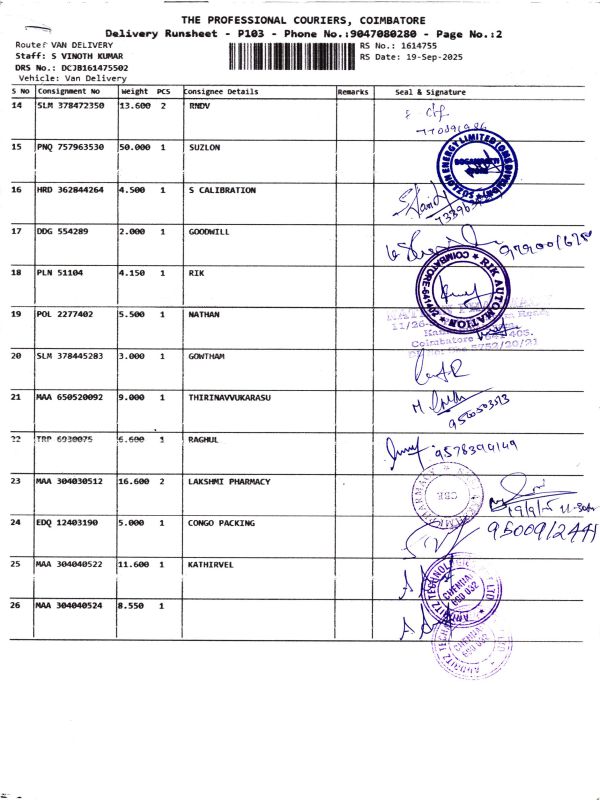 THE PROFESSIONAL COURIERS, COIMBATORE
Delivery Runsheet - P103 - Phone No.:9047080280 - Page No.:2
Route: VAN DELIVERY
RS No.: 1614755
Staff: S VINOTH KUMAR
RS Date: 19-Sep-2025
DRS No.: DCJB161475502
Vehicle: Van Delivery
S No Consignment No Weight PCS Consignee Details Remarks Seal & Signature
14 SLM 378472350 13.600 2 RNDV
15 PNQ 757963530 50.000 1 SUZLON
SUZLON ENERGY LIMITED
16 HRD 362844264 4.500 1 S CALIBRATION
17 DDG 554289 2.000 1 GOODWILL
18 PLN 51104 4.150 1 RIK
RIK AUTOMATION
19 POL 2277402 5.500 1 NATHAN
20 SLM 378445283 3.000 1 GOWTHAM
21 MAA 650520092 9.000 1 THIRINAVVUKARASU
22 TRP 6930075 6.600 1 RAGHUL
9578399149
23 MAA 304030512 16.600 2 LAKSHMI PHARMACY
CBE
24 EDQ 12403190 5.000 1 CONGO PACKING
25 MAA 304040522 11.600 1 KATHIRVEL
CHENNAI
600 032
26 MAA 304040524 8.550 1
CHENNAI
600 032